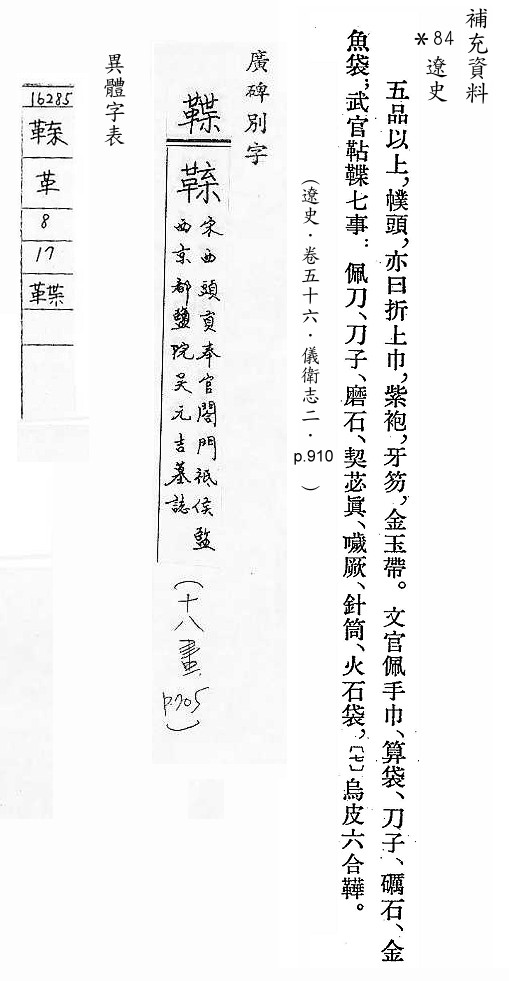 補充資料
*84 遼史
五品以上,幞頭,亦曰折上巾,紫袍,牙笏,金玉帶。文官佩手巾、算袋、刀子、礪石、金
魚袋;武官䩞鞢七事:佩刀、刀子、磨石、契苾眞、噦厥、針筒、火石袋,〔七〕烏皮六合鞾。
(遼史.卷五十六.儀衛志二.p.910)
廣碑別字
鞢
宋西頭貢奉官閤門祇侯監
西京都鹽院吳元吉墓誌
(十八畫 p.705)
異體字表
16285
革
8
17
鞢